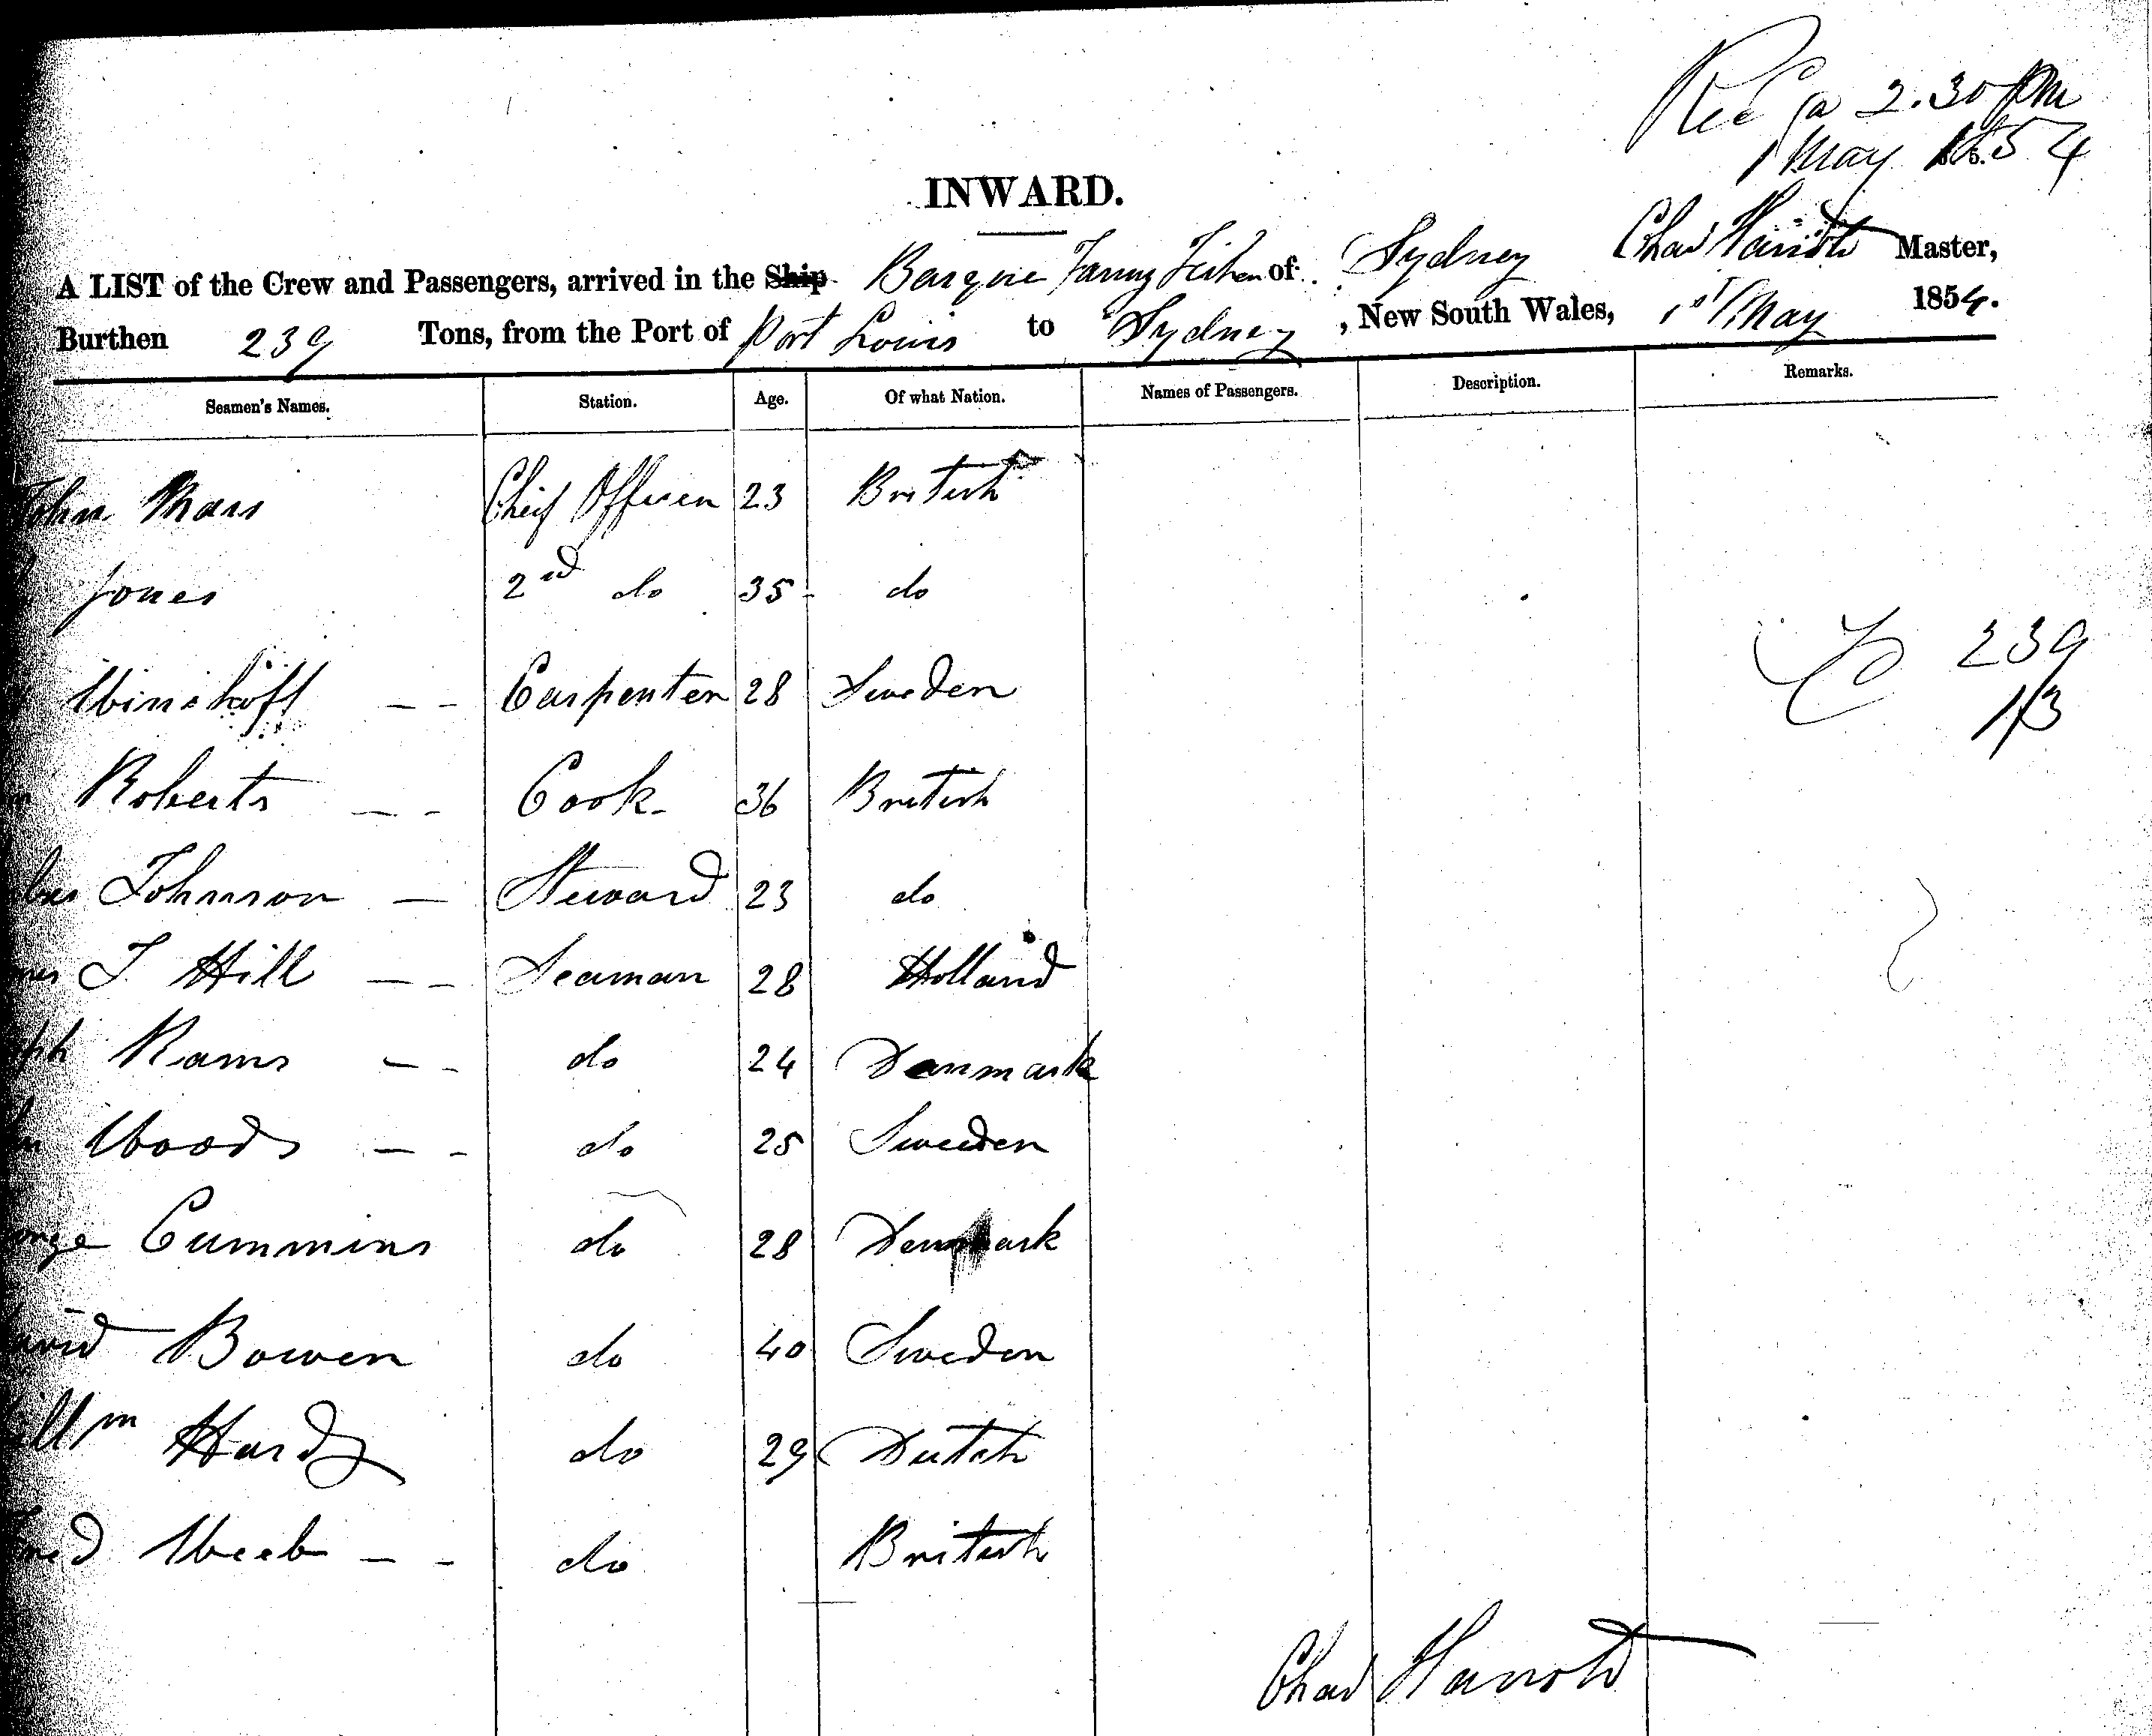 Rec @ 2.30 pm
1 May 1854
INWARD.
A LIST of the Crew and Passengers, arrived in the Ship Barque Fanny Fisher of Sydney Chas Harrold Master,
Burthen 239 Tons, from the Port of Port Louis to Sydney, New South Wales, 1st May 1854.
Seamen's Names. Station. Age. Of what Nation. Names of Passengers. Description. Remarks.
John Chief Officer 23 British
Jones 2nd do 35 do
Carpenter 28 Sweden
239
13
Roberts - - Cook - 36 British
Johnson - Steward 23 do
J. Hill - - Seaman 28 Holland
Rams - - do 24 Denmark
Woods - - do 25 Sweden
Cummins do 28 Denmark
Bowen do 40 Sweden
Willm Hardy do 29 Dutch
Webb - - do British
Chas Harrold